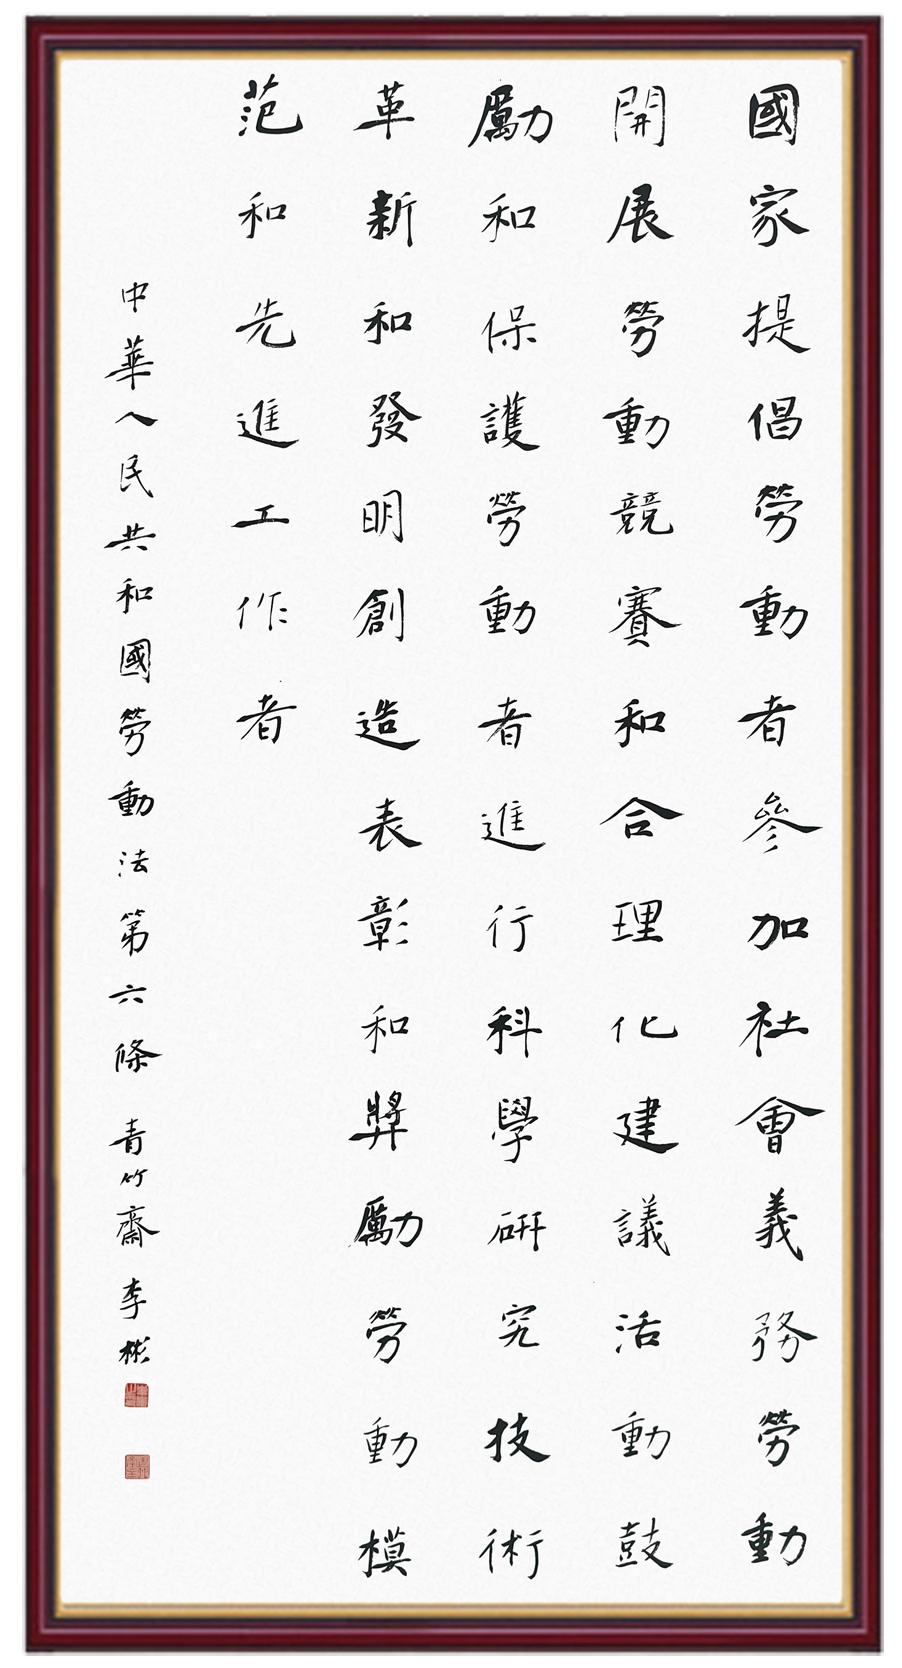 國家提倡勞動者參加社會義務勞動
開展勞動競賽和合理化建議活動鼓
勵和保護勞動者進行科學研究技術
革新和發明創造表彰和獎勵勞動模
范和先進工作者
中華人民共和國勞動法第六條 青竹齋 李彬